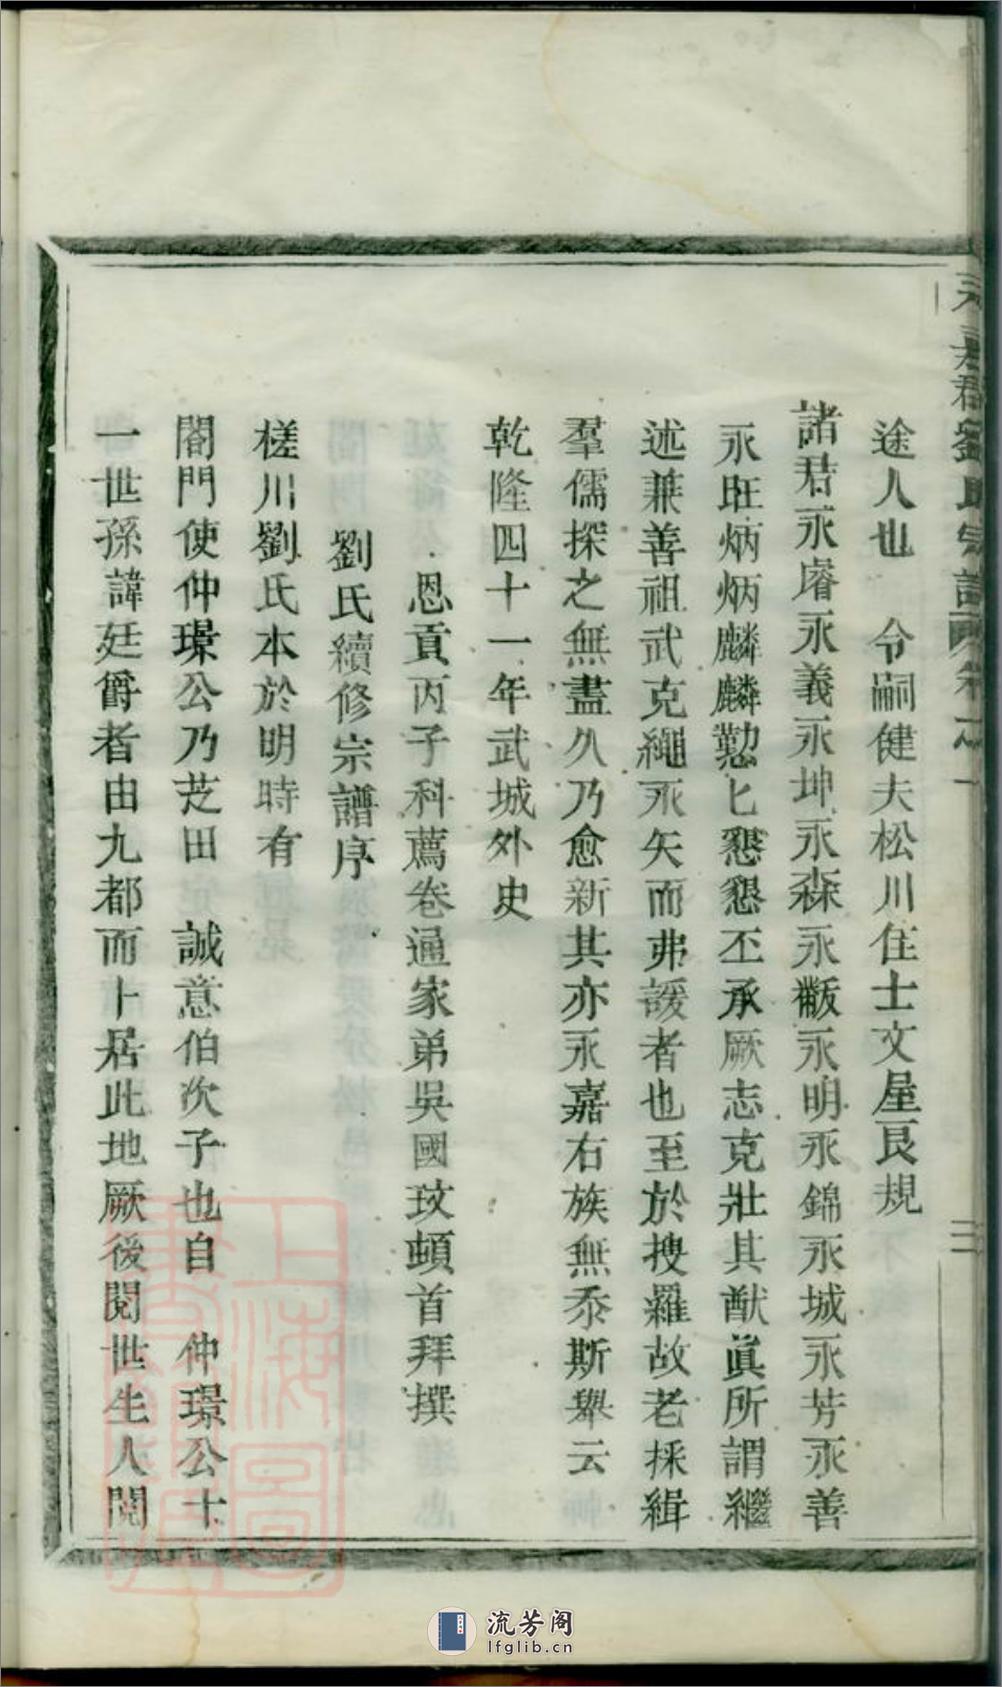 永嘉郡劉氏宗譜
途人也　令嗣健夫松川佳士文星艮規
諸君永睿永義永坤永森永黻永明永錦永城永芳永善
永旺炳炳麟麟懃匕懇懇丕承厥志克壯其猷眞所謂繼
述兼善祖武克繩永矢而弗諼者也至於搜羅故老採緝
羣儒探之無盡久乃愈新其亦永嘉右族無忝斯舉云
乾隆四十一年武城外史
恩貢丙子科薦卷通家弟吳國玟頓首拜撰
劉氏續修宗譜序
槎川劉氏本於明時有
閤門使仲璟公乃芝田　誠意伯次子也自　仲璟公十
一世孫諱廷爵者由九都而卜居此地厥後閱世生人閱
上海圖書館藏
流芳阁
lfglib.cn